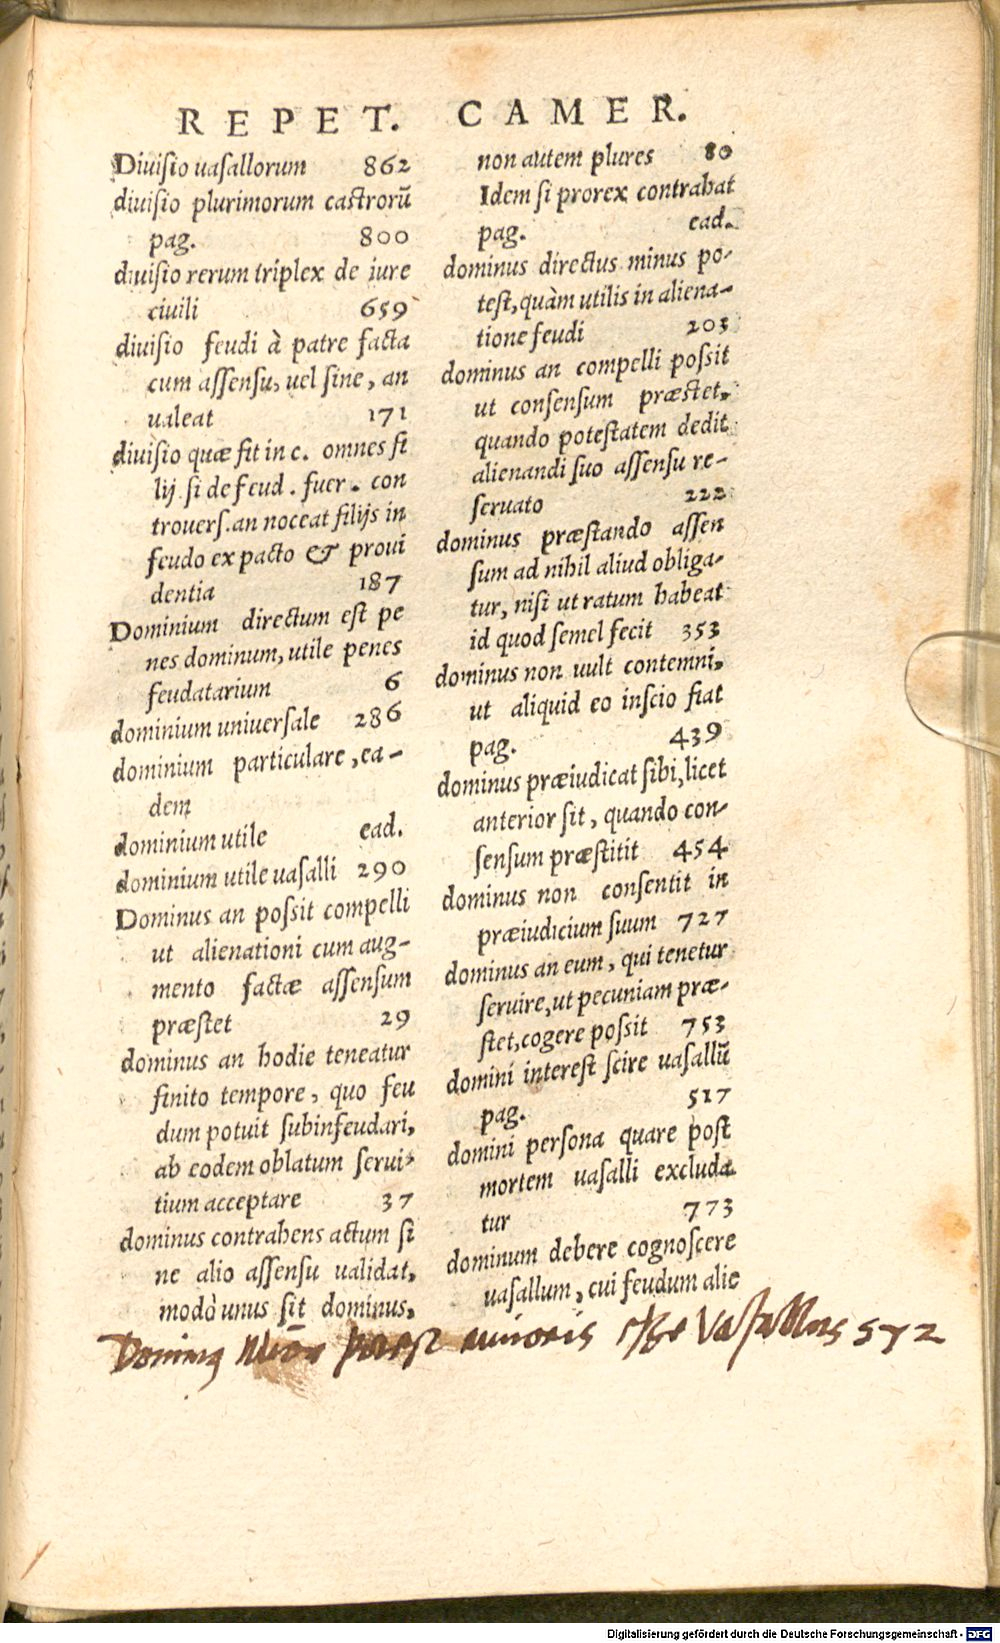 REPET. CAMER.
Diuiſio uaſallorum 862
diuiſio plurimorum caſtrorū
pag. 800
diuiſio rerum triplex de iure
ciuili 659
diuiſio feudi à patre facta
cum aſſenſu, uel ſine, an
ualeat 171
diuiſio quæ fit in c. omnes fi
lij ſi de feud. fuer. con
trouerſ. an noceat filijs in
feudo ex pacto & proui
dentia 187
Dominium directum eſt pe
nes dominum, utile penes
feudatarium 6
dominium uniuerſale 286
dominium particulare, ea-
dem
dominium utile ead.
dominium utile uaſalli 290
Dominus an poſſit compelli
ut alienationi cum aug-
mento factæ aſſenſum
præſtet 29
dominus an hodie teneatur
finito tempore, quo feu
dum potuit ſubinfeudari,
ab eodem oblatum ſerui-
tium acceptare 37
dominus contrahens actum ſi
ne alio aſſenſu ualidat,
modò unus ſit dominus,
non autem plures 80
Idem ſi prorex contrahat
pag. ead.
dominus directus minus po-
teſt, quàm utilis in aliena-
tione feudi 203
dominus an compelli poſſit
ut conſenſum præſtet,
quando poteſtatem dedit
alienandi ſuo aſſenſu re-
ſeruato 222
dominus præſtando aſſen
ſum ad nihil aliud obliga-
tur, niſi ut ratum habeat
id quod ſemel fecit 353
dominus non uult contemni,
ut aliquid eo inſcio fiat
pag. 439
dominus præiudicat ſibi, licet
anterior ſit, quando con-
ſenſum præſtitit 454
dominus non conſentit in
præiudicium ſuum 727
dominus an eum, qui tenetur
ſeruire, ut pecuniam præ-
ſtet, cogere poſſit 753
domini intereſt ſcire uaſallū
pag. 517
domini perſona quare poſt
mortem uaſalli excluda
tur 773
dominum debere cognoſcere
uaſallum, cui feudum alie
poteſt minoris eſſe Vaſallus 572
Digitalisierung gefördert durch die Deutsche Forschungsgemeinschaft - DFG